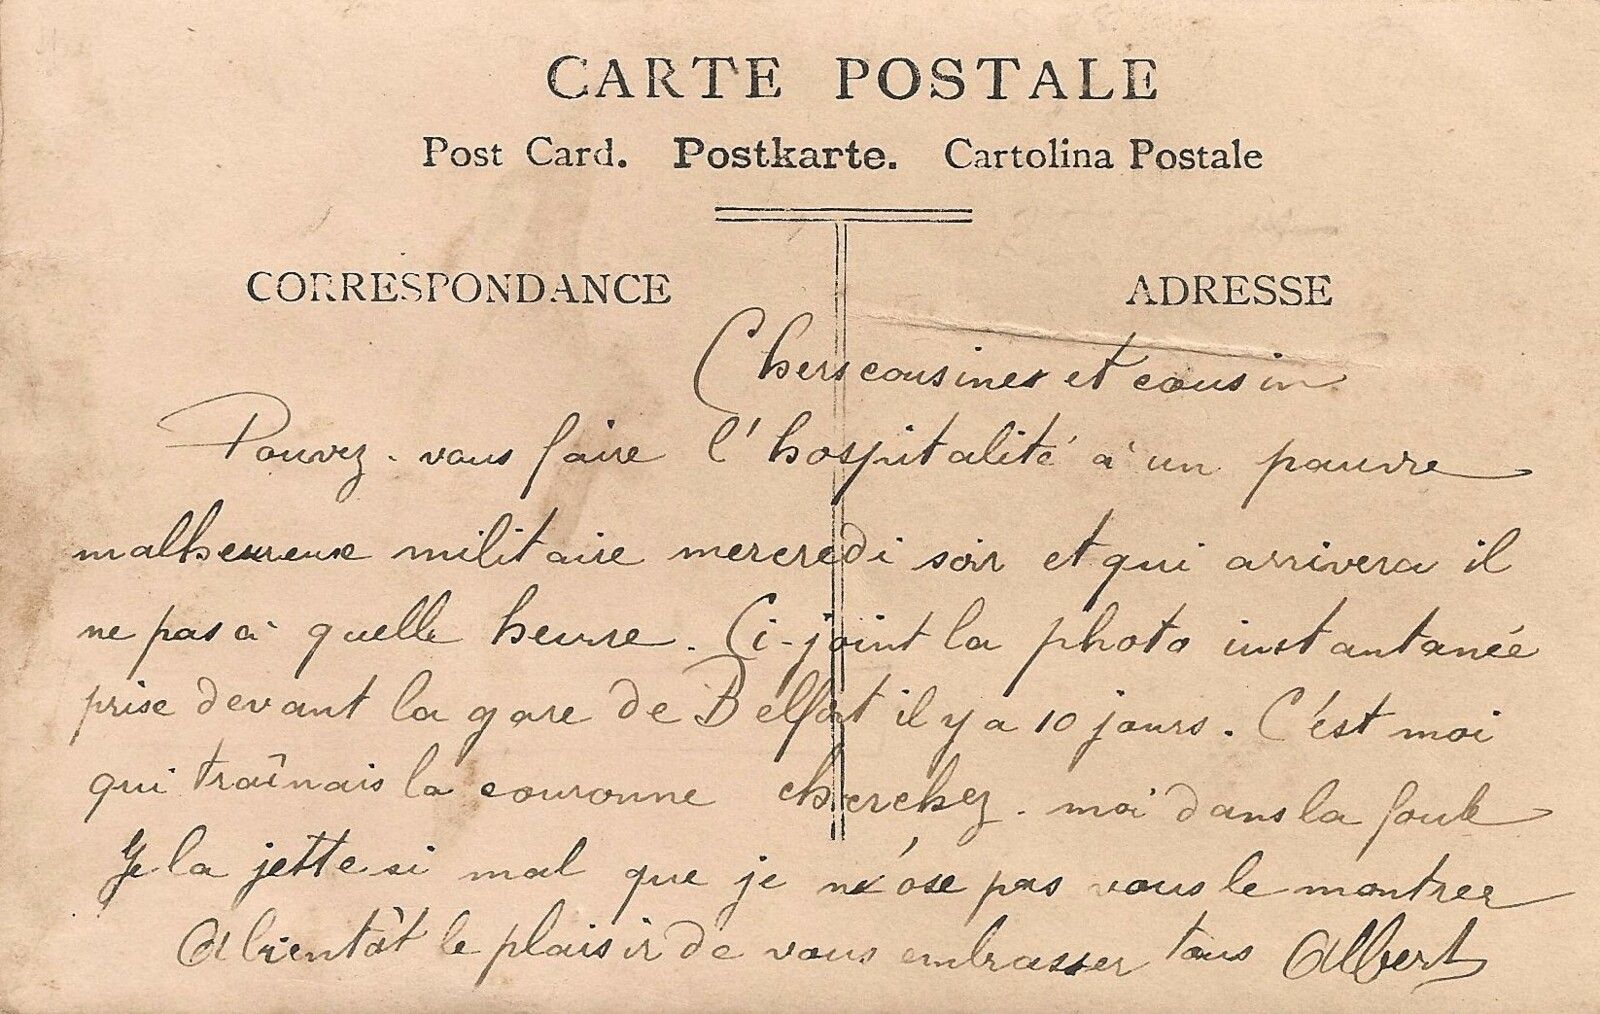 CARTE POSTALE
Post Card. Postkarte. Cartolina Postale
CORRESPONDANCE ADRESSE
Chers cousines et cousin
Pouvez-vous faire l'hospitalité à un pauvre
malheureux militaire mercredi soir et qui arrivera il
ne pas à quelle heure. Ci-joint la photo instantanée
prise devant la gare de Belfort il y a 10 jours. C'est moi
qui traînais la couronne cherchez-moi dans la foule
Je la jette si mal que je n'ose pas vous le montrer
A bientôt le plaisir de vous embrasser tous Albert